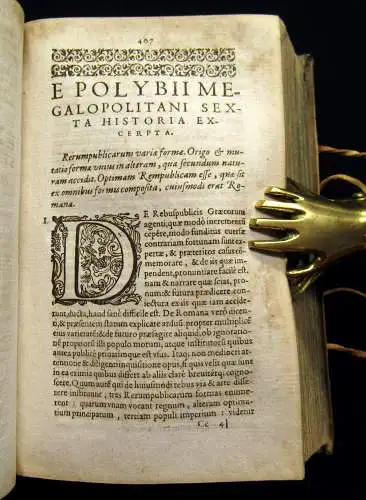 467
E POLYBII ME-
GALOPOLITANI SEX-
TA HISTORIA EX-
CERPTA.
Rerumpublicarum variæ formæ. Origo & mu-
tatio formæ unius in alteram, quæ secundum natu-
ram accidit. Optimam Rempublicam esse, quæ sit
ex omnibus formis composita, cuiusmodi erat Ro-
mana.
I.
DE Rebuspublicis Græcorum
agenti, quæ modò incrementū
cepêre, modo funditus
contrariam fortunam sunt exper-
tæ, & præteritos casus
memorare, & de iis quæ im-
pendent, pronuntiare facile est.
nam & narrare quæ scias, pro-
num: & futura prædicere, con-
iectura ex iis quæ iam accide-
runt, ducta, haud sanè difficile est. De Romana verò di-
cere, & præsentem statum explicare arduū. propter multiplicē
eius varietatē: & de futuro præsagire aliquid, ob ignoratio-
nē propriorū illi populo morum, atque institutorū quibus
antea publicè privatimque est usus. Itaq; non mediocri at-
tentione & diligenti inquisitione opus, si quis velit ea quæ
in ea eximia quibus differt ab aliis clarè breviterq; cogno-
scere. Quum autē qui de huiusmodi rebus via & arte disse-
rere instituunt, tres Rerumpublicarum formas enume-
rent: quarum unam vocant regnum, alteram optima-
tium principatum, tertiam populi imperium: videtur
Cc 4